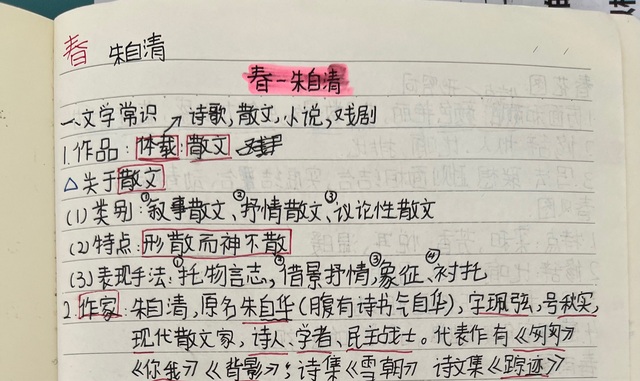 春 朱自清
春-朱自清
一.文学常识 → 诗歌,散文,小说,戏剧
1.作品:体裁:散文
△关于散文
(1)类别:①叙事散文、②抒情散文、③议论性散文
(2)特点:形散而神不散
(3)表现手法:①托物言志,②借景抒情,③象征、④衬托
2.作家:朱自清,原名朱自华(腹有诗书气自华),字珮弦,号秋实,
现代散文家,诗人、学者、民主战士。代表作有《匆匆》
《你我》《背影》;诗集《雪朝》 诗文集《踪迹》